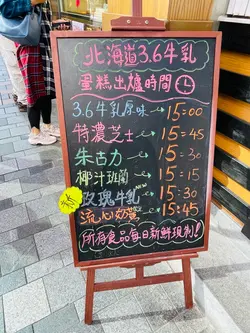 北海道3.6牛乳
蛋糕出爐時間
3.6牛乳原味 → 15:00
特濃芝士 → 15:45
朱古力 → 15:30
椰汁班蘭 → 15:15
玫瑰牛乳 → 15:30
流心奶黃 → 15:45
所有食品每日新鮮現制!
新